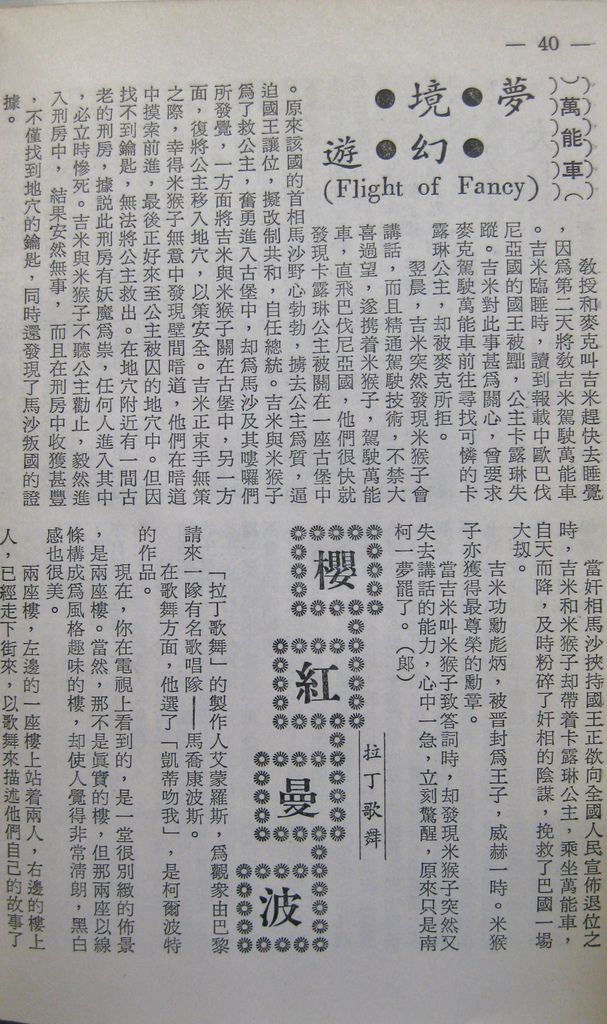 — 40 —
萬能車
夢●境●
幻●遊●
(Flight of Fancy)
教授和麥克叫吉米趕快去睡覺
，因爲第二天將敎吉米駕駛萬能車
。吉米臨睡時，讀到報載中歐巴伐
尼亞國的國王被黜，公主卡露琳失
蹤。吉米對此事甚爲關心，曾要求
麥克駕駛萬能車前往尋找可憐的卡
露琳公主，却被麥克所拒。
翌晨，吉米突然發現米猴子會
講話，而且精通駕駛技術，不禁大
喜過望，遂携着米猴子，駕駛萬能
車，直飛巴伐尼亞國，他們很快就
發現卡露琳公主被關在一座古堡中
。原來該國的首相馬沙野心勃勃，擄去公主爲質，逼
迫國王讓位，擬改制共和，自任總統。吉米與米猴子
爲了救公主，奮勇進入古堡中，却爲馬沙及其嘍囉們
所發覺，一方面將吉米與米猴子關在古堡中，另一方
面，復將公主移入地穴，以策安全。吉米正束手無策
之際，幸得米猴子無意中發現壁間暗道，他們在暗道
中摸索前進，最後正好來至公主被囚的地穴中。但因
找不到鑰匙，無法將公主救出。在地穴附近有一間古
老的刑房，據說此刑房有妖魔爲祟，任何人進入其中
，必立時慘死。吉米與米猴子不聽公主勸止，毅然進
入刑房中，結果安然無事，而且在刑房中收獲甚豐
，不僅找到地穴的鑰匙，同時還發現了馬沙叛國的證
據。
當奸相馬沙挾持國王正欲向全國人民宣佈退位之
時，吉米和米猴子却帶着卡露琳公主，乘坐萬能車，
自天而降，及時粉碎了奸相的陰謀，挽救了巴國一場
大刼。
吉米功勳彪炳，被晋封爲王子，威赫一時。米猴
子亦獲得最尊榮的勳章。
當吉米叫米猴子致答詞時，却發現米猴子突然又
失去講話的能力，心中一急，立刻驚醒，原來只是南
柯一夢罷了。（郎）
拉丁歌舞
櫻紅曼波
「拉丁歌舞」的製作人艾蒙羅斯，爲觀衆由巴黎
請來一隊有名歌唱隊——馬喬康波斯。
在歌舞方面，他選了「凱蒂吻我」，是柯爾波特
的作品。
現在，你在電視上看到的，是一堂很別緻的佈景
，是兩座樓。當然，那不是眞實的樓，但那兩座以線
條構成爲風格趣味的樓，却使人覺得非常淸朗，黑白
感也很美。
兩座樓，左邊的一座樓上站着兩人，右邊的樓上
人，已經走下街來，以歌舞來描述他們自己的故事了